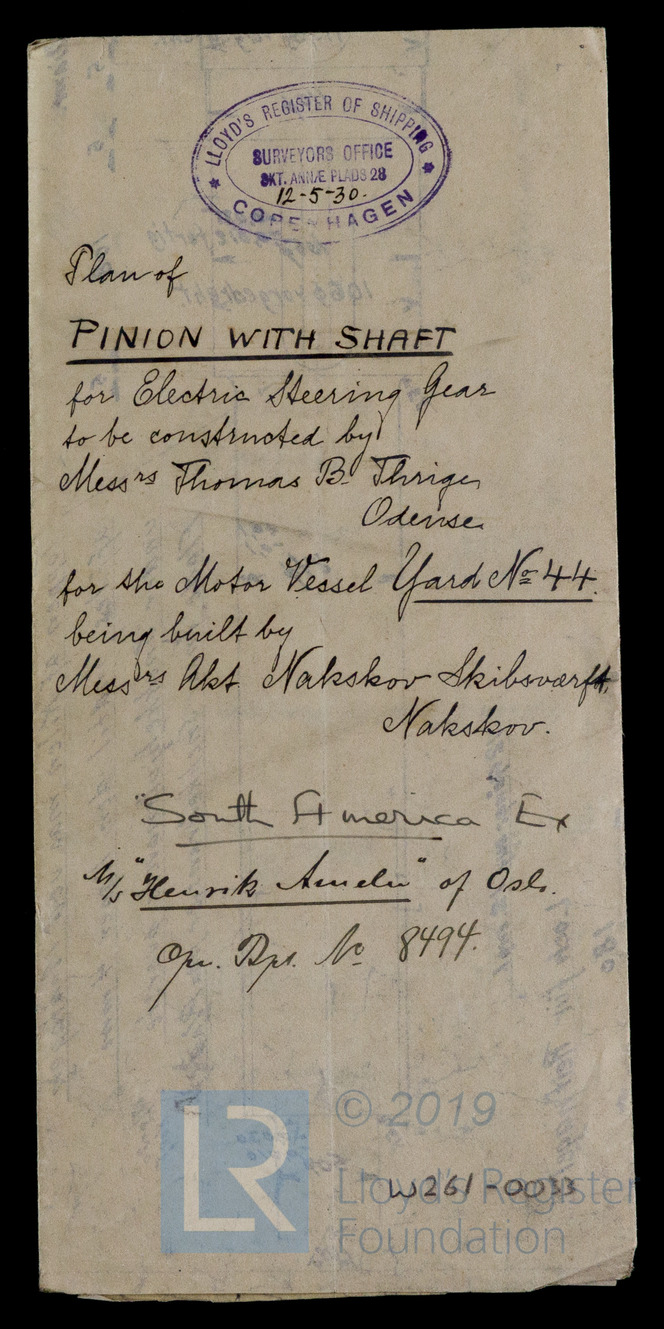 LLOYD'S REGISTER OF SHIPPING
SURVEYORS OFFICE
SKT. ANNÆ PLADS 28
12-5-30.
COPENHAGEN
Plan of
PINION WITH SHAFT
for Electric Steering Gear
to be constructed by
Messrs Thomas B. Thrige,
Odense.
for the Motor Vessel Yard No 44.
being built by
Messrs Akt. Nakskov Skibsværft,
Nakskov.
"South America" Ex
M/s "Henrik Ameln" of Oslo.
Cpn. Rpt. No 8494.
LR
© 2019
W261-0033
Lloyd's Register
Foundation